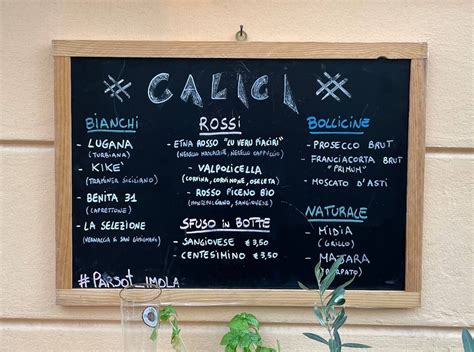 # CALICI #
BIANCHI
- LUGANA
(TURBIANA)
- KIKE'
(TRAMINER SICILIANO)
- BENITA 31
(CAPRETTONE)
- LA SELEZIONE
(VERNACCIA DI SAN GIMIGNANO)
ROSSI
- ETNA ROSSO "LU VERU PIACIRI"
(NERELLO MASCALESE, NERELLO CAPPUCCIO)
- VALPOLICELLA
(CORVINA, CORVINONE, OSELETA)
- ROSSO PICENO BIO
(MONTEPULCIANO, SANGIOVESE)
SFUSO IN BOTTE
- SANGIOVESE € 3,50
- CENTESIMINO € 3,50
BOLLICINE
- PROSECCO BRUT
- FRANCIACORTA BRUT
"PRIMUM"
- MOSCATO D'ASTI
NATURALE
- MIDIA
(GRILLO)
- MATARA
#PARSOT_IMOLA